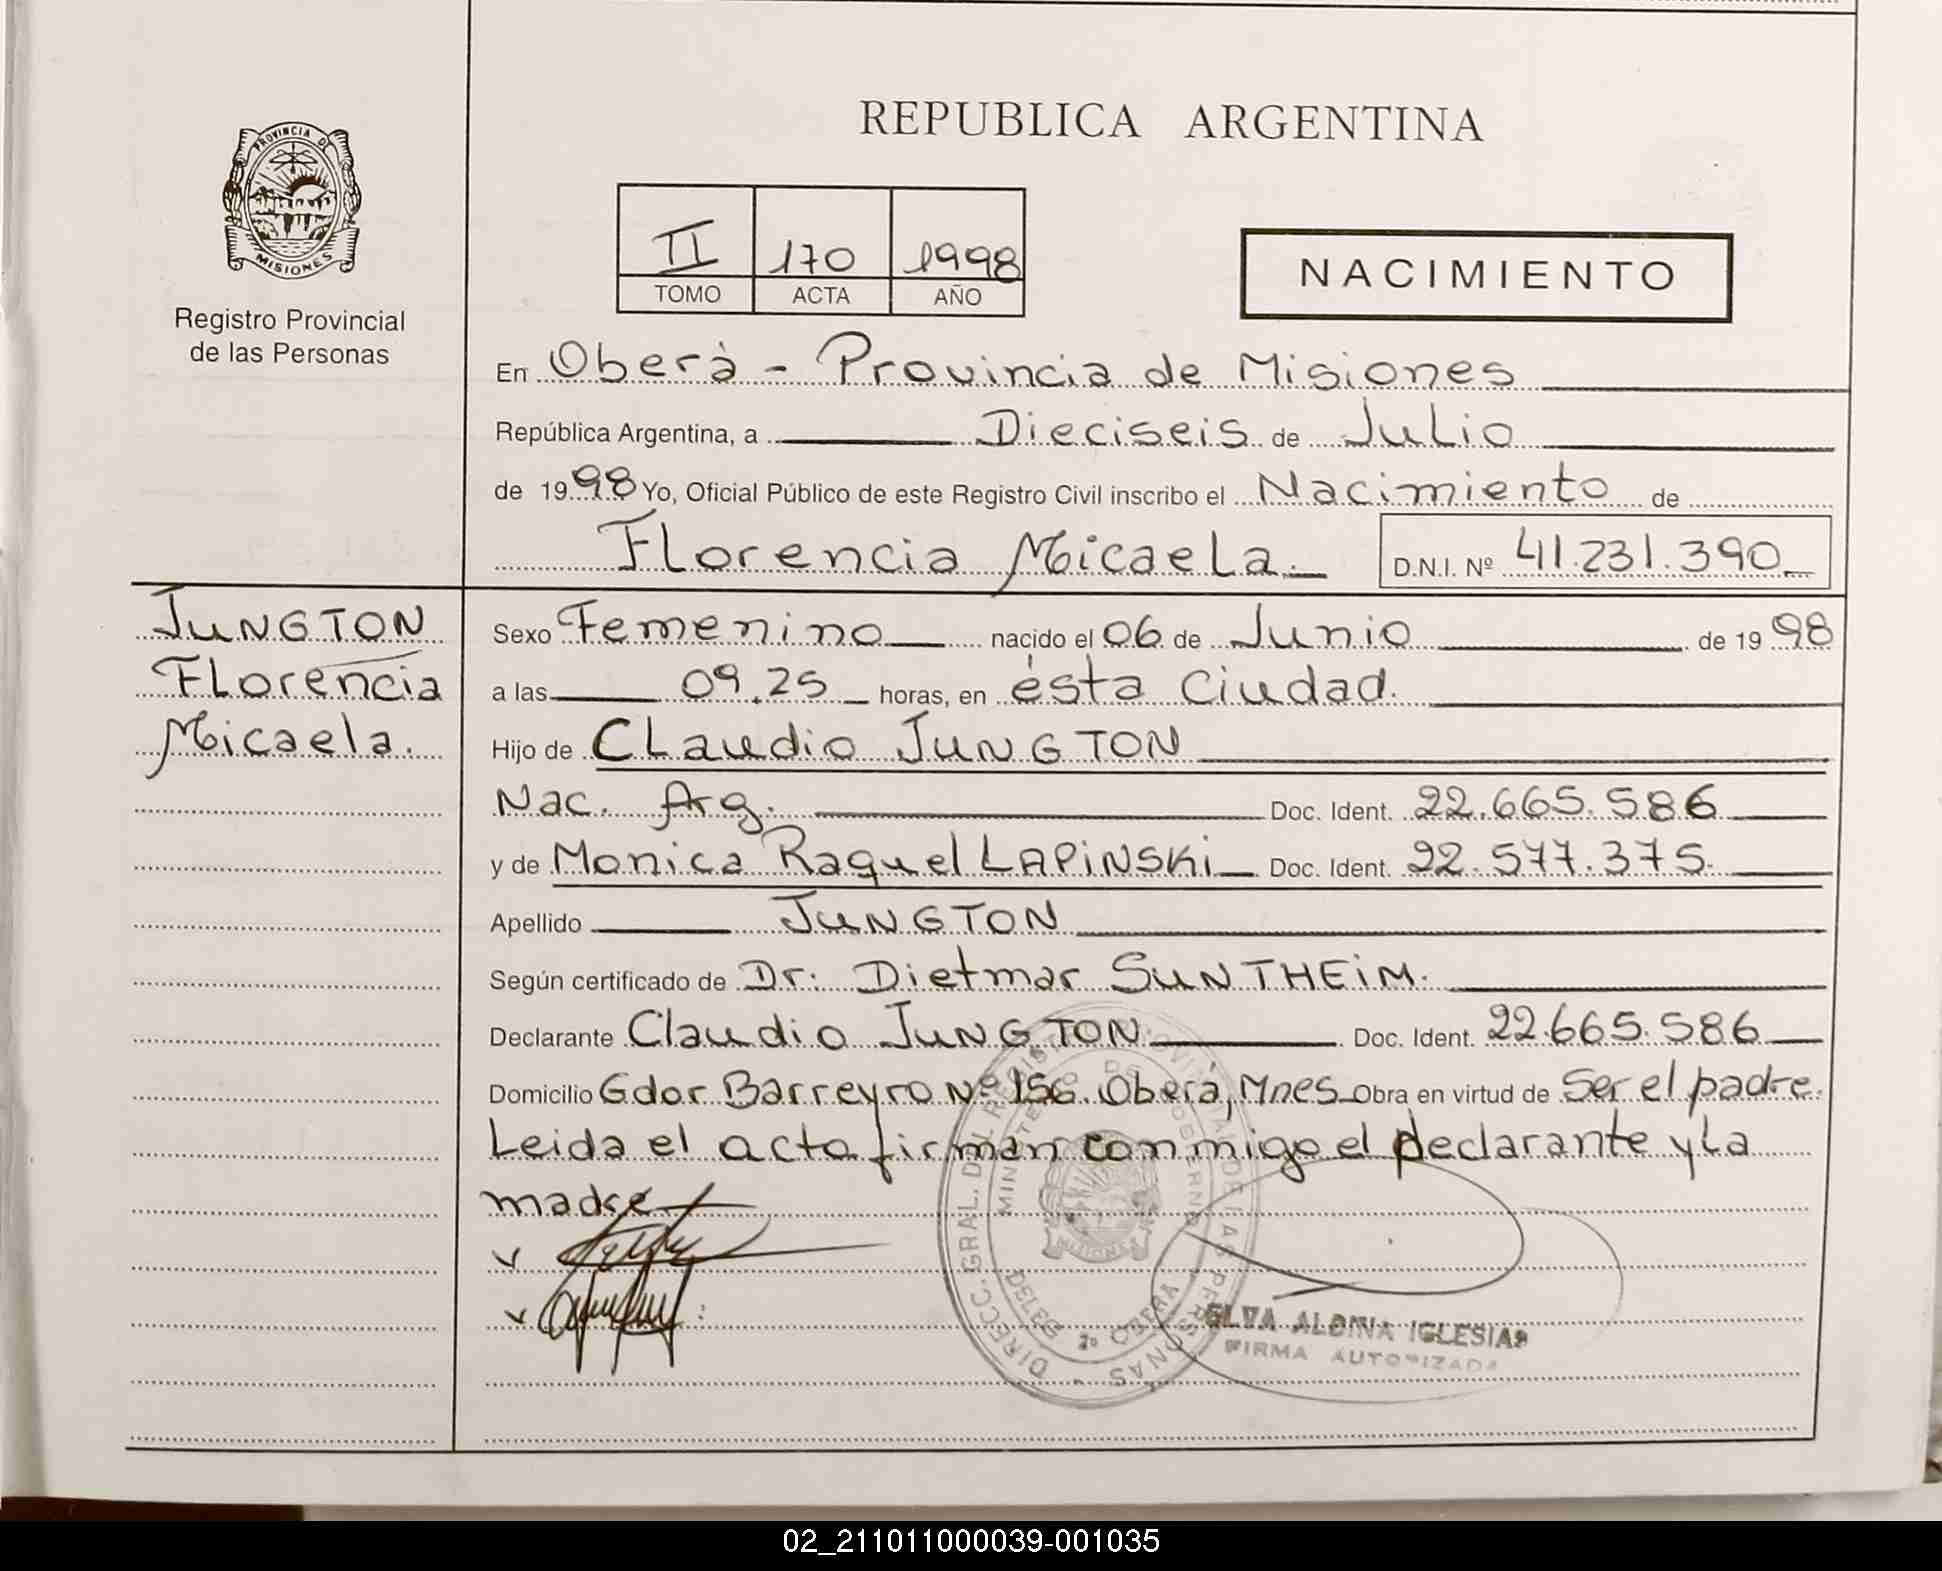 REPUBLICA ARGENTINA
PROVINCIA DE
MISIONES
Registro Provincial
de las Personas
II 170 1998
TOMO ACTA AÑO
NACIMIENTO
En Oberà - Provincia de Misiones
República Argentina, a Dieciseis de Julio
de 1998 Yo, Oficial Público de este Registro Civil inscribo el Nacimiento de
Florencia Micaela. D.N.I. Nº 41.231.390
JUNGTON
Florencia
Micaela.
Sexo Femenino nacido el 06 de Junio de 1998
a las 09.25 horas, en ésta Ciudad.
Hijo de Claudio JUNGTON
Nac. Arg. Doc. Ident. 22.665.586
y de Monica Raquel LAPiNSKi Doc. Ident. 22.577.375.
Apellido JUNGTON
Según certificado de Dr: Dietmar SUNTHEiM.
Declarante Claudio JUNGTON. Doc. Ident. 22.665.586
Domicilio Gdor Barreyro Nº 156. Oberà, Mnes Obra en virtud de Ser el padre.
Leida el acta firman conmigo el declarante y la
madre
DIRECC. GRAL. DEL REGIST. PROVINCIAL DE LAS PERSONAS -
MINISTERIO DE GOBIERNO
MISIONES
DELEG 2º OBERA
ELVA ALBINA IGLESIAS
FIRMA AUTORIZADA
02_211011000039-001035